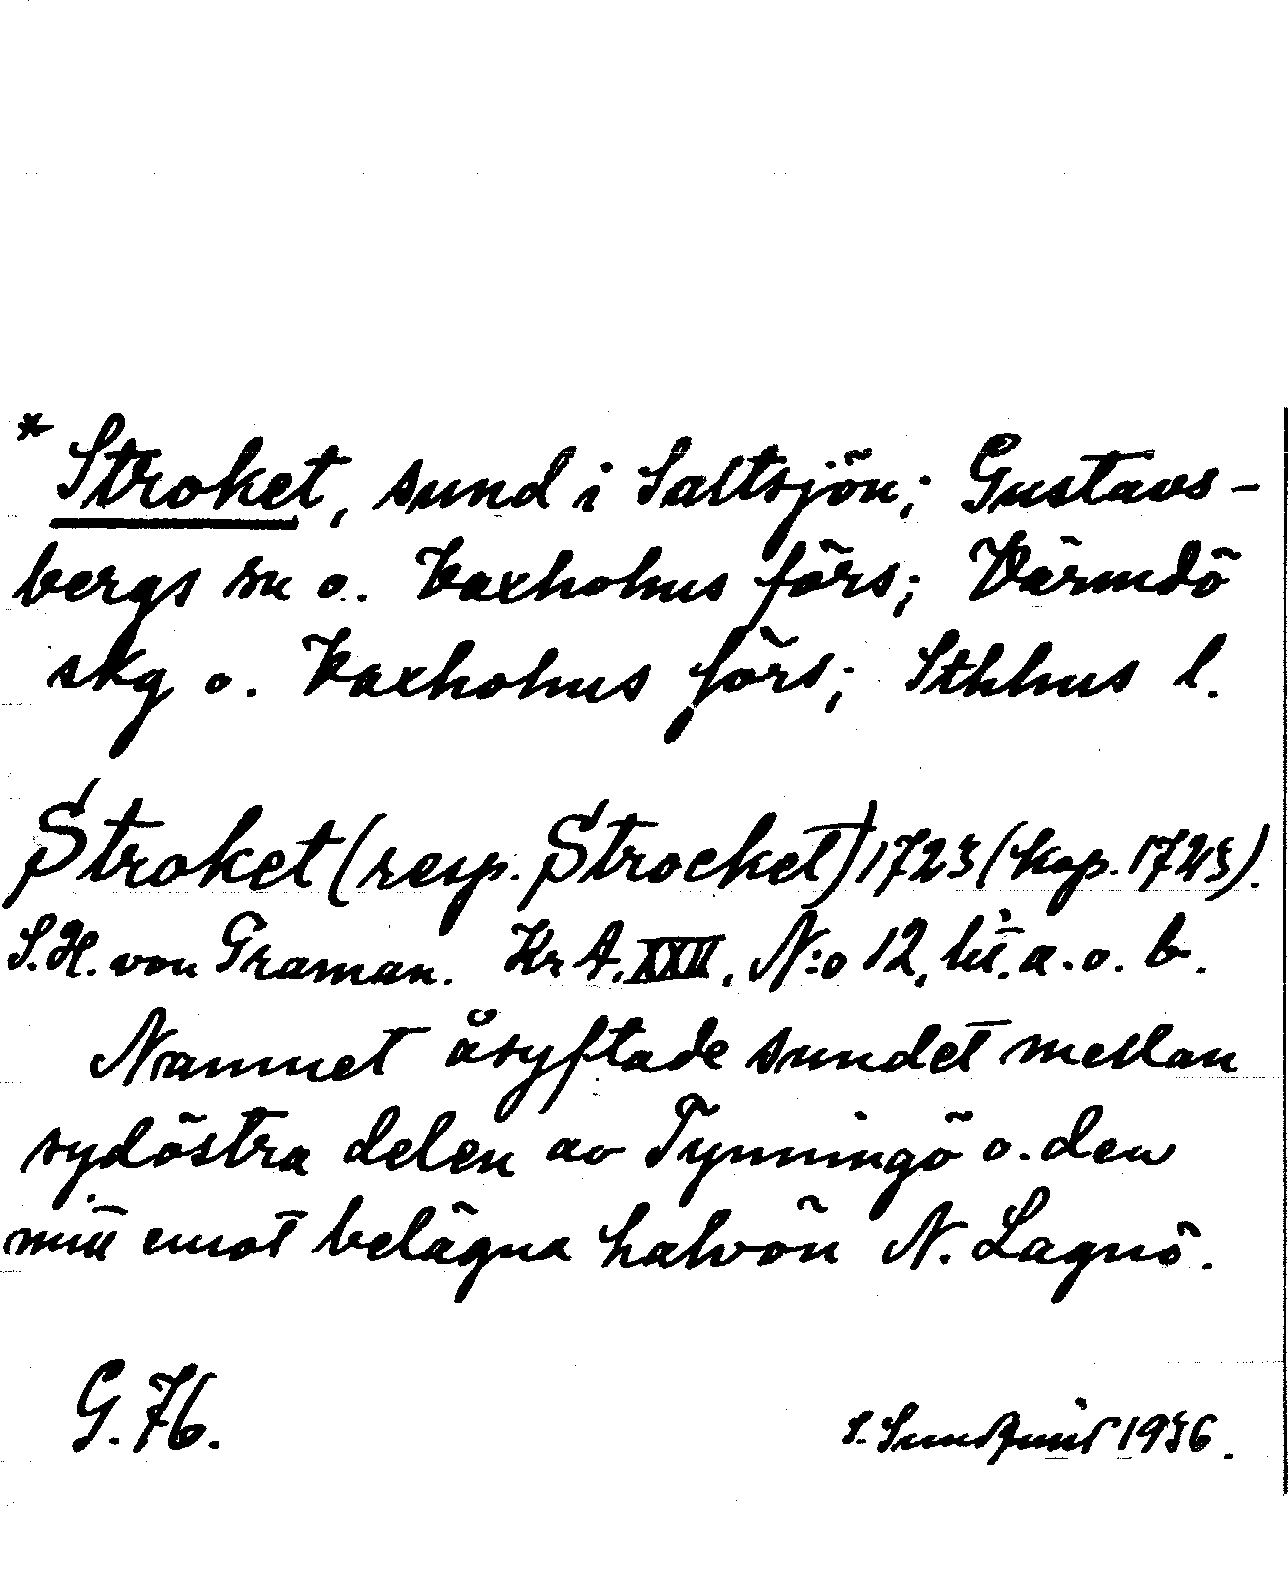 * Stroket, sund i Saltsjön; Gustavs-
bergs sn o. Vaxholms förs; Värmdö
skg o. Vaxholms förs; Sthlms l.
Stroket (resp. Strocket) 1723 (kop. 1743).
S.H. von Graman. Kr A. XXV, N:o 12, litt. a. o. b.
Namnet åsyftade sundet mellan
sydöstra delen av Tynningö o. den
mitt emot belägna halvön N. Lagnö.
G. 76.
S. Sundquist 1936.